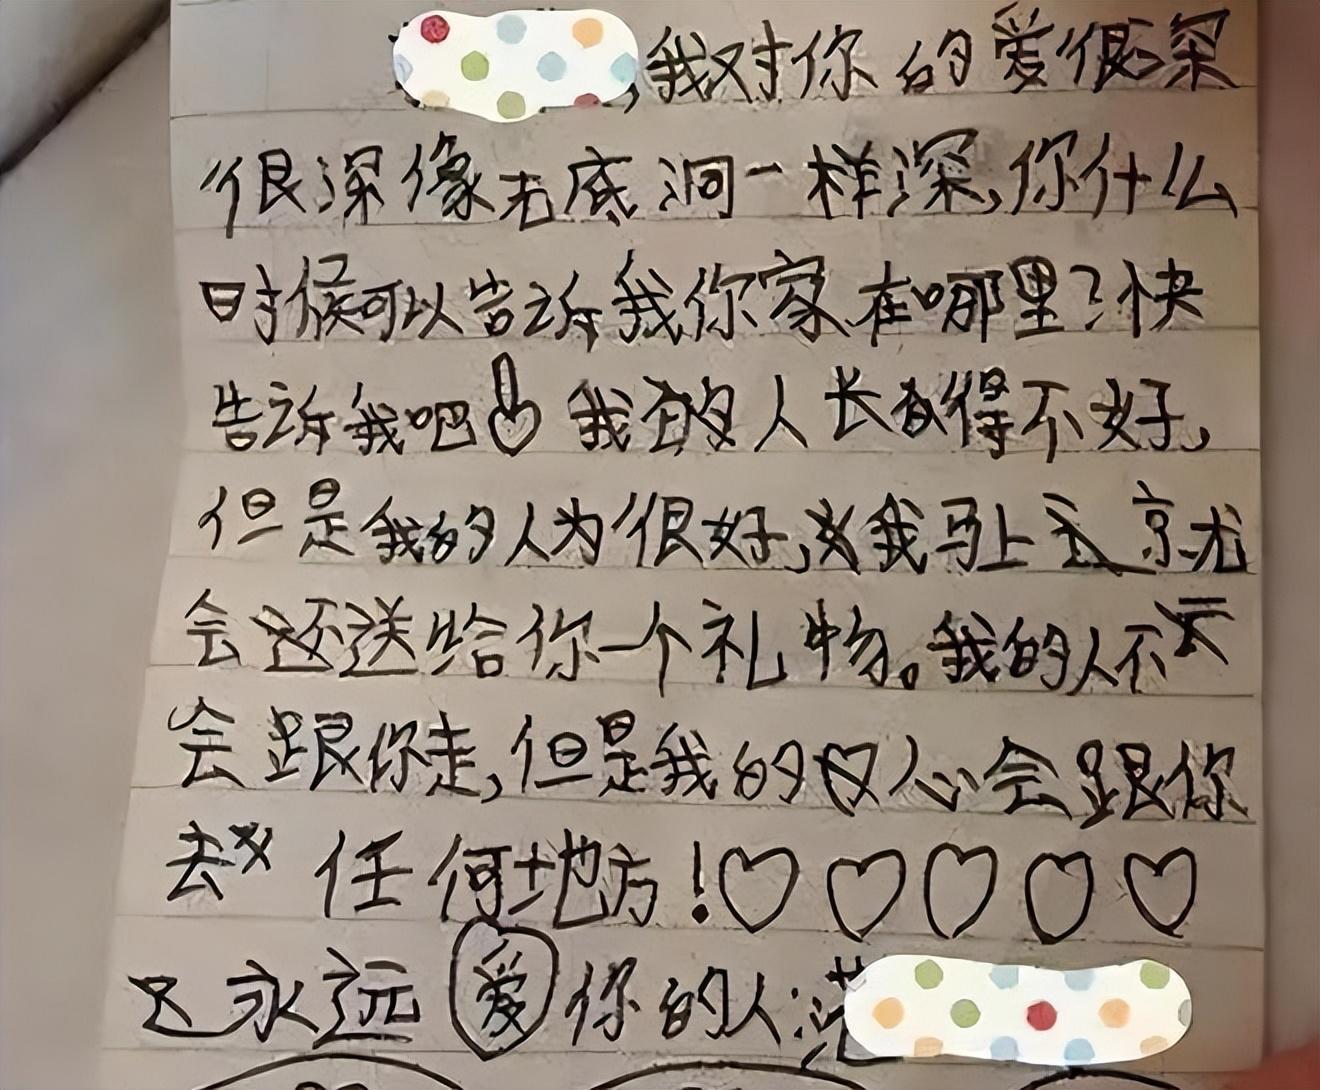 ,我对你的爱很深
很深像无底洞一样深,你什么
时候可以告诉我你家在哪里?快
告诉我吧 我的人长得不好,
但是我的人为很好,我马上就
会送给你一个礼物。我的人不
会跟你走,但是我的心会跟你
去 任何地方!♡♡♡♡♡
永远爱你的人:范